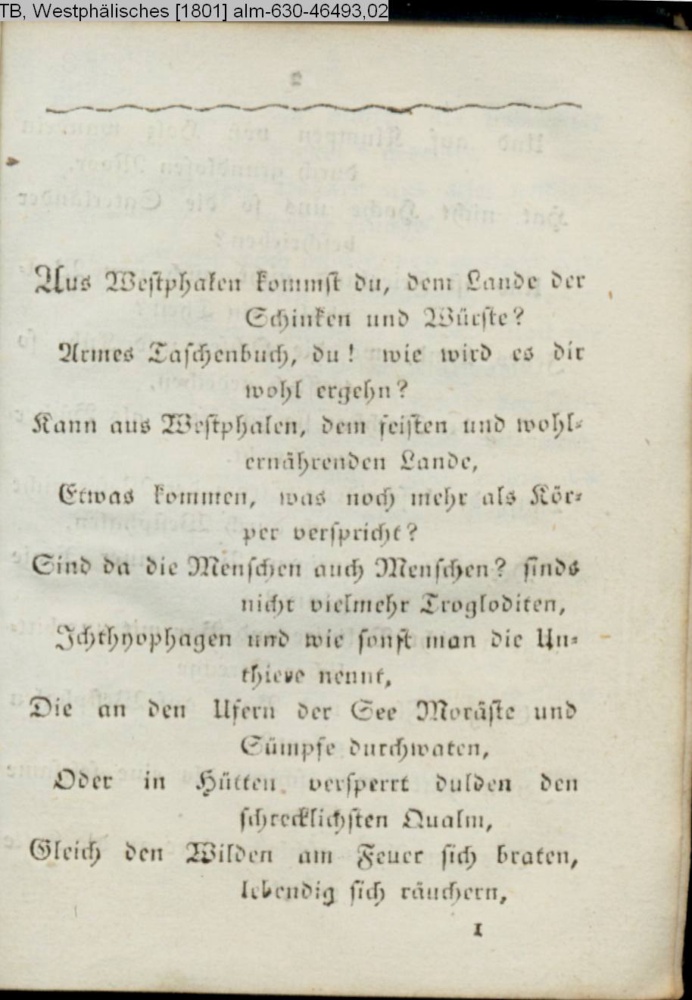 TB, Westphälisches [1801] alm-630-46493,02
Aus Westphalen kommst du, dem Lande der
Schinken und Würste?
Armes Taschenbuch, du! wie wird es dir
wohl ergehn?
Kann aus Westphalen, dem feisten und wohl-
ernährenden Lande,
Etwas kommen, was noch mehr als Kör-
per verspricht?
Sind da die Menschen auch Menschen? sinds
nicht vielmehr Trogloditen,
Ichthyophagen und wie sonst man die Un-
thieve nennt,
Die an den Ufern der See Moräste und
Sümpfe durchwaten,
Oder in Hütten versperrt dulden den
schrecklichsten Qualm,
Gleich den Wilden am Feuer sich braten,
lebendig sich räuchern,
1